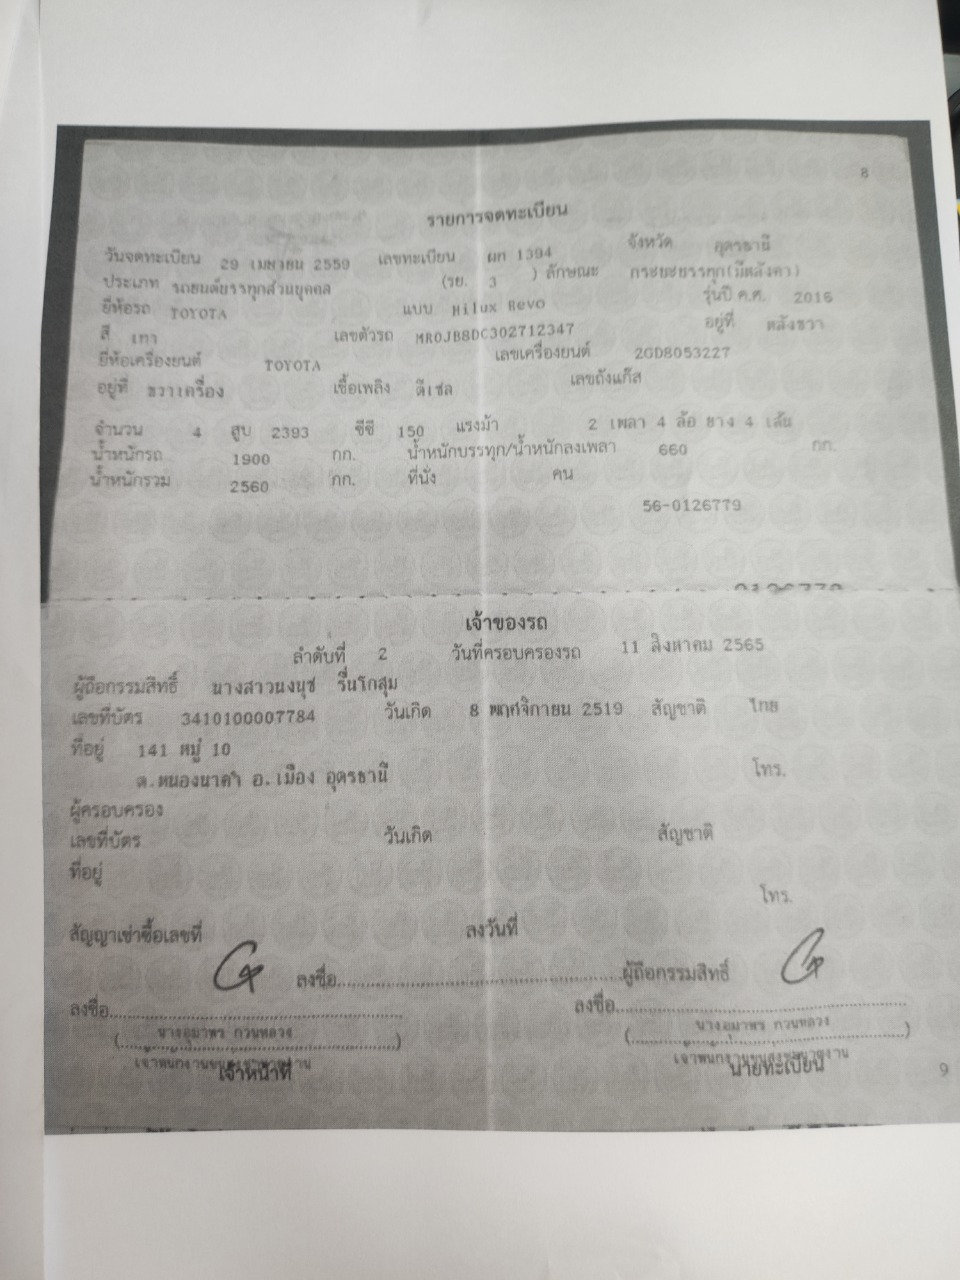 8
รายการจดทะเบียน
วันจดทะเบียน 29 เมษายน 2559 เลขทะเบียน ผก 1394 จังหวัด อุดรธานี
ประเภท รถยนต์บรรทุกส่วนบุคคล (รย. 3 ) ลักษณะ กระบะบรรทุก(มีหลังคา)
ยี่ห้อรถ TOYOTA แบบ Hilux Revo รุ่นปี ค.ศ. 2016
สี เทา เลขตัวรถ MR0JB8DC302712347 อยู่ที่ หลังขวา
ยี่ห้อเครื่องยนต์ TOYOTA เลขเครื่องยนต์ 2GD8053227
อยู่ที่ ขวาเครื่อง เชื้อเพลิง ดีเซล เลขถังแก๊ส
จำนวน 4 สูบ 2393 ซีซี 150 แรงม้า 2 เพลา 4 ล้อ ยาง 4 เส้น
น้ำหนักรถ 1900 กก. น้ำหนักบรรทุก/น้ำหนักลงเพลา 660 กก.
น้ำหนักรวม 2560 กก. ที่นั่ง คน
56-0126779
เจ้าของรถ
ลำดับที่ 2 วันที่ครอบครองรถ 11 สิงหาคม 2565
ผู้ถือกรรมสิทธิ์ นางสาวนงนุช รื่นโกสุม
เลขที่บัตร 3410100007784 วันเกิด 8 พฤศจิกายน 2519 สัญชาติ ไทย
ที่อยู่ 141 หมู่ 10
ต.หนองนาคำ อ.เมือง อุดรธานี โทร.
ผู้ครอบครอง
เลขที่บัตร วันเกิด สัญชาติ
ที่อยู่
โทร.
สัญญาเช่าซื้อเลขที่ ลงวันที่
ลงชื่อ ผู้ถือกรรมสิทธิ์
ลงชื่อ ลงชื่อ
( นางอุมาพร กวนหลวง ) ( นางอุมาพร กวนหลวง )
เจ้าพนักงานขนส่งชำนาญงาน เจ้าพนักงานขนส่งชำนาญงาน
เจ้าหน้าที่ นายทะเบียน 9